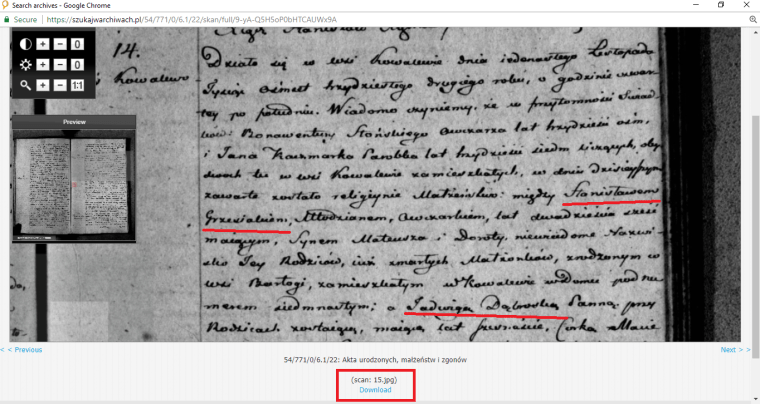 Search archives - Google Chrome
Secure | https://szukajwarchiwach.pl/54/771/0/6.1/22/skan/full/9-yA-Q5H5oP0bHTCAUWx9A
+ − 0
+ − 0
+ − 1:1
Preview
14.
Kowalewo
Działo się w wsi Kowalewie dnia iedenastego Listopada
Tysiąc ośmset trzydziestego drugiego roku, o godzinie czwar
tey po południu. Wiadomo czyniemy, że w przytomności Świad
ków: Bonawentury Stańskiego Owczarza lat trzydzieści ośm,
i Jana Kaczmarka Parobka lat trzydzieści siedm liczących, oby
dwóch tu w wsi Kowalewie zamieszkałych, w dniu dzisieyszym
zawarte zostało religiynie Małżeństwo między Stanisławem
Grzesiakiem, Młodzianem, Owczarkiem, lat dwadzieścia sześć
maiącym, Synem Mateusza i Doroty, niewiadome Nazwi
sko Jey Rodziców, iuż zmarłych Małżonków, zrodzonym w
wsi Bartogi, zamieszkałym w Kowalewie w domu pod nu
merem siedmnastym; a Jadwigą Dąbroską Panną, przy
Rodzicach zostaiącą, maiącą lat, Córką
< < Previous
Next > >
54/771/0/6.1/22: Akta urodzonych, małżeństw i zgonów
(scan: 15.jpg)
Download